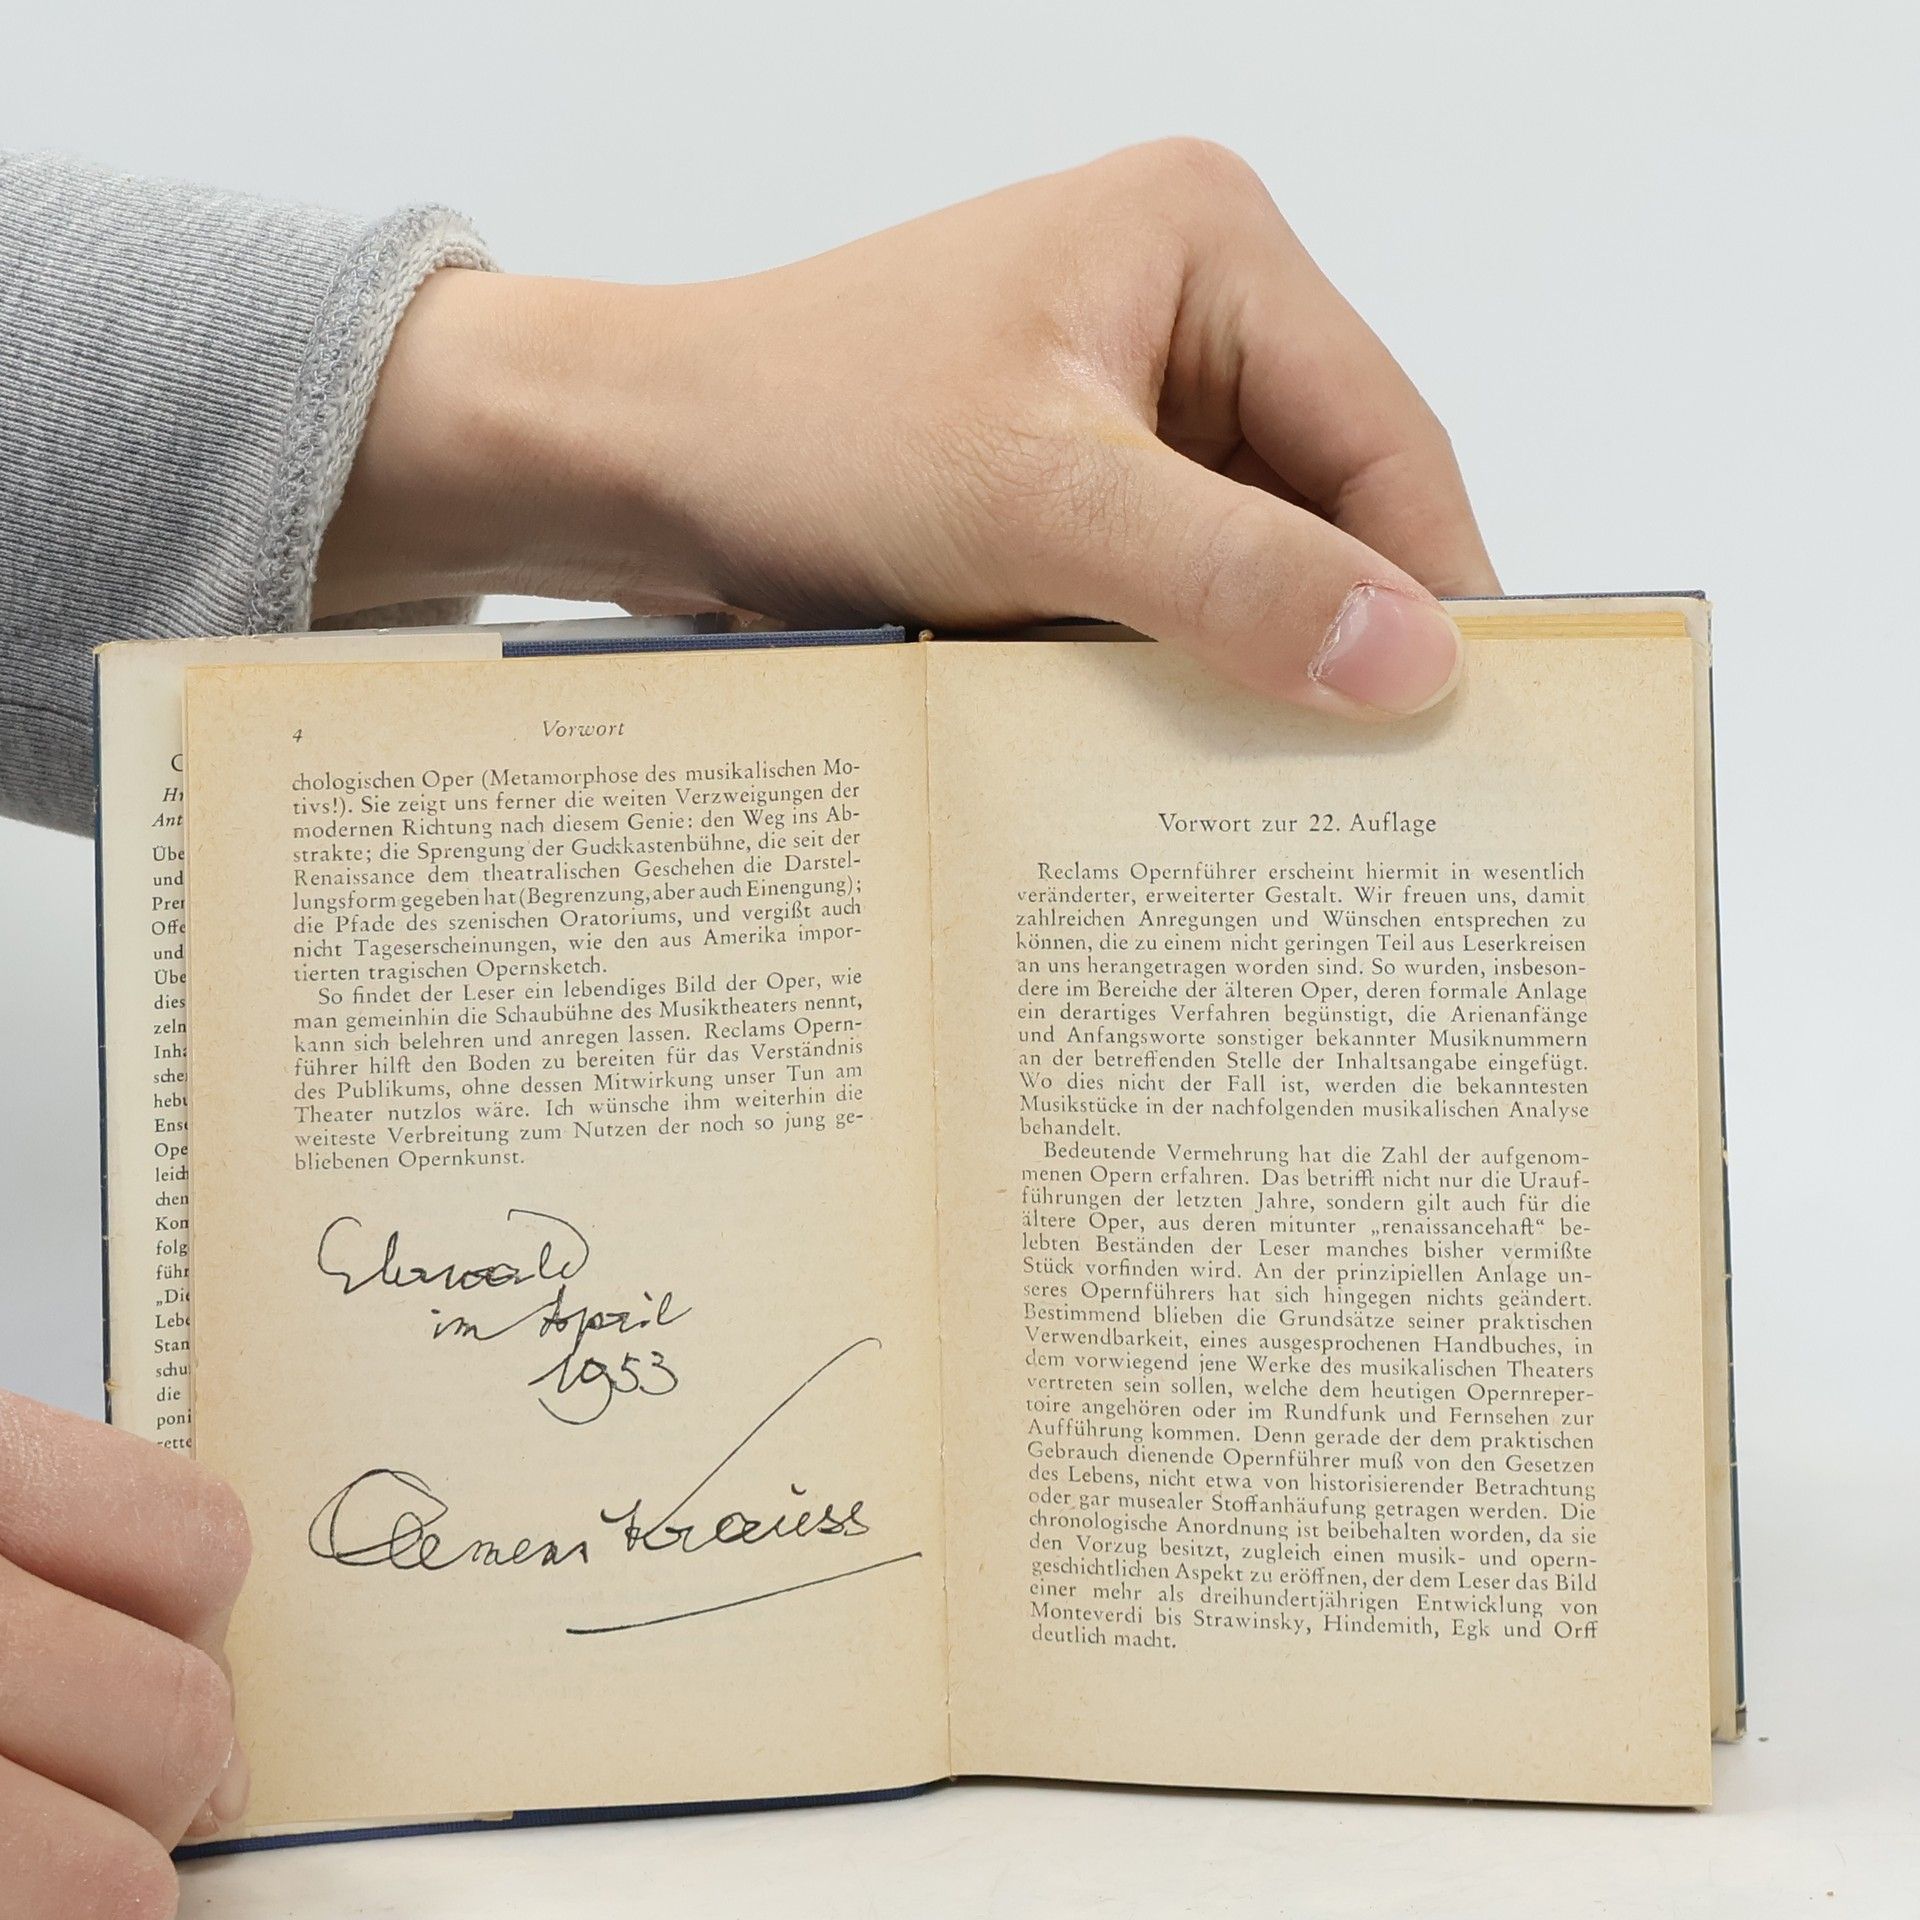 4
Vorwort
chologischen Oper (Metamorphose des musikalischen Mo-
tivs!). Sie zeigt uns ferner die weiten Verzweigungen der
modernen Richtung nach diesem Genie: den Weg ins Ab-
strakte; die Sprengung der Guckkastenbühne, die seit der
Renaissance dem theatralischen Geschehen die Darstel-
lungsform gegeben hat (Begrenzung, aber auch Einengung);
die Pfade des szenischen Oratoriums, und vergißt auch
nicht Tageserscheinungen, wie den aus Amerika impor-
tierten tragischen Opernsketch.
So findet der Leser ein lebendiges Bild der Oper, wie
man gemeinhin die Schaubühne des Musiktheaters nennt,
kann sich belehren und anregen lassen. Reclams Opern-
führer hilft den Boden zu bereiten für das Verständnis
des Publikums, ohne dessen Mitwirkung unser Tun am
Theater nutzlos wäre. Ich wünsche ihm weiterhin die
weiteste Verbreitung zum Nutzen der noch so jung ge-
bliebenen Opernkunst.
im April
1953
Clemens Krauss
Übe
und
Offe
und
Übe
dies
zeln
Ope
die
„Die
Vorwort zur 22. Auflage
Reclams Opernführer erscheint hiermit in wesentlich
veränderter, erweiterter Gestalt. Wir freuen uns, damit
zahlreichen Anregungen und Wünschen entsprechen zu
können, die zu einem nicht geringen Teil aus Leserkreisen
an uns herangetragen worden sind. So wurden, insbeson-
dere im Bereiche der älteren Oper, deren formale Anlage
ein derartiges Verfahren begünstigt, die Arienanfänge
und Anfangsworte sonstiger bekannter Musiknummern
an der betreffenden Stelle der Inhaltsangabe eingefügt.
Wo dies nicht der Fall ist, werden die bekanntesten
Musikstücke in der nachfolgenden musikalischen Analyse
behandelt.
Bedeutende Vermehrung hat die Zahl der aufgenom-
menen Opern erfahren. Das betrifft nicht nur die Urauf-
führungen der letzten Jahre, sondern gilt auch für die
ältere Oper, aus deren mitunter „renaissancehaft“ be-
lebten Beständen der Leser manches bisher vermißte
Stück vorfinden wird. An der prinzipiellen Anlage un-
seres Opernführers hat sich hingegen nichts geändert.
Bestimmend blieben die Grundsätze seiner praktischen
Verwendbarkeit, eines ausgesprochenen Handbuches, in
dem vorwiegend jene Werke des musikalischen Theaters
vertreten sein sollen, welche dem heutigen Opernreper-
toire angehören oder im Rundfunk und Fernsehen zur
Aufführung kommen. Denn gerade der dem praktischen
Gebrauch dienende Opernführer muß von den Gesetzen
des Lebens, nicht etwa von historisierender Betrachtung
oder gar musealer Stoffanhäufung getragen werden. Die
chronologische Anordnung ist beibehalten worden, da sie
den Vorzug besitzt, zugleich einen musik- und opern-
geschichtlichen Aspekt zu eröffnen, der dem Leser das Bild
einer mehr als dreihundertjährigen Entwicklung von
Monteverdi bis Strawinsky, Hindemith, Egk und Orff
deutlich macht.